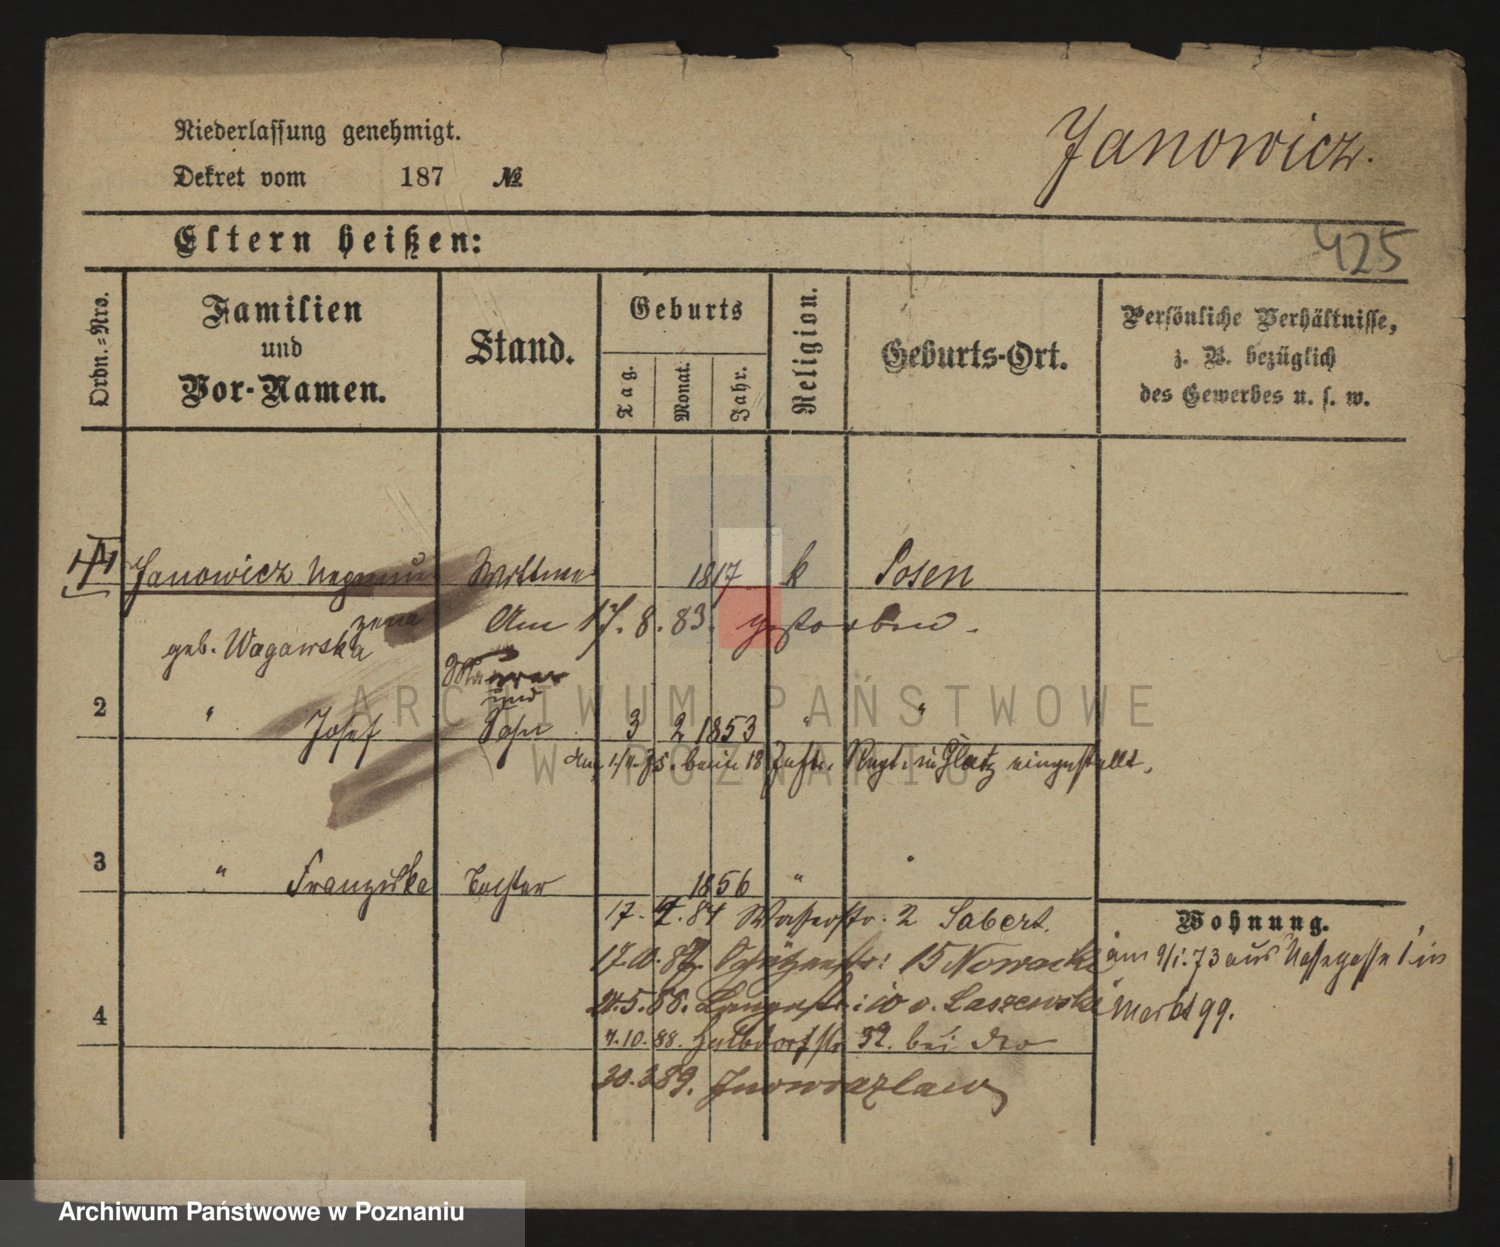 Niederlassung genehmigt.
Janowicz.
Dekret vom 187 №
Eltern heißen:
425
Ordn.-Nro.
Familien
und
Vor-Namen.
Stand.
Geburts
Tag.
Monat.
Jahr.
Religion.
Geburts-Ort.
Persönliche Verhältnisse,
z. B. bezüglich
des Gewerbes u. s. w.
Janowicz Wittwe 1817 k Posen
Am 17. 8. 83. gestorben.
geb. Wagowska
Maurer
und
2 " Josef Sohn 3 2 1853 " "
beim 18 Inftr. Regt. in Glatz eingestellt.
3 " Franziska Tochter 1856 "
17. 2. 84 Wasserstr. 2 Sabert.
Wohnung.
17.10.87. Schützenstr: 15 Nowacki
am 9/1.73 aus in
21.5.88. Langestr: 10 v. Laszewski
Markt 99.
4
7.10.88. Halbdorfstr 32. bei
30.3.89. Inowrazlaw
ARCHIWUM PAŃSTWOWE
W POZNANIU
Archiwum Państwowe w Poznaniu